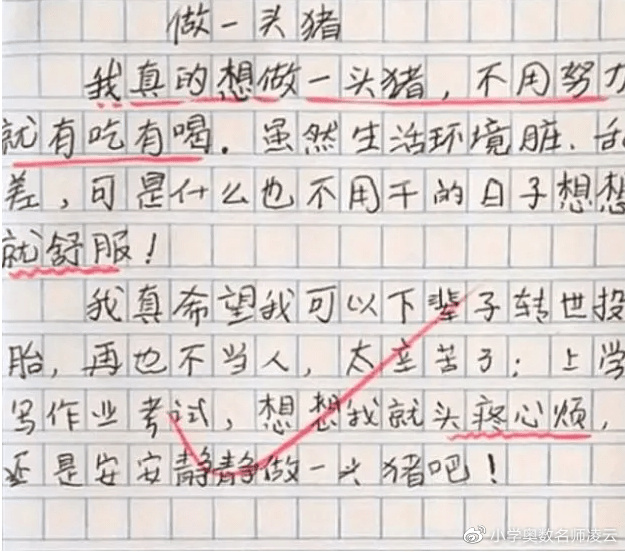 做一头猪
我真的想做一头猪，不用努力
就有吃有喝。虽然生活环境脏、乱
差，可是什么也不用干的日子想想
就舒服！
我真希望我可以下辈子转世投
胎，再也不当人，太辛苦了；上学
写作业考试，想想我就头疼心烦，
还是安安静静做一头猪吧！
小学奥数名师凌云